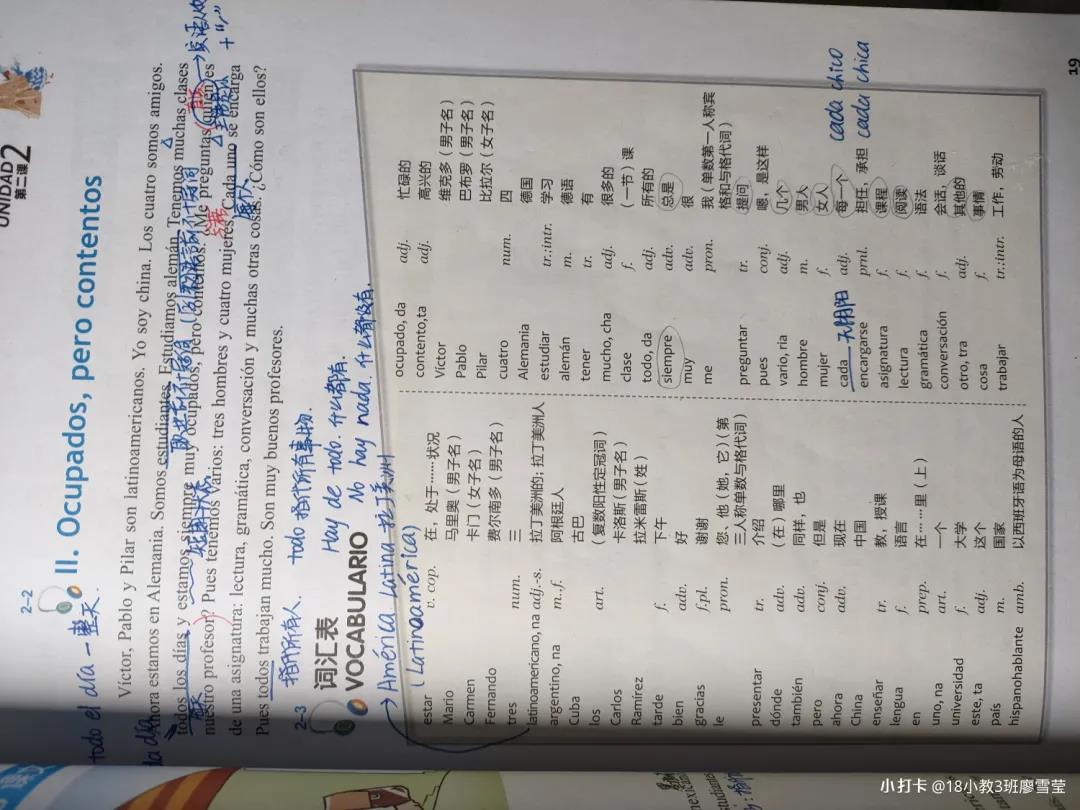 UNIDAD 2
第二课
2-2
II. Ocupados, pero contentos
todo el día — 整天
Víctor, Pablo y Pilar son latinoamericanos. Yo soy china. Los cuatro somos amigos.
Ahora estamos en Alemania. Somos estudiantes. Estudiamos alemán. Tenemos muchas clases
todos los días y estamos siempre muy ocupados, pero contentos. ¿Me preguntas quién es
nuestro profesor? Pues tenemos varios: tres hombres y cuatro mujeres. Cada uno se encarga
de una asignatura: lectura, gramática, conversación y muchas otras cosas. ¿Cómo son ellos?
Pues todos trabajan mucho. Son muy buenos profesores.
指代所有人. todo 指代所有事物.
2-3
词汇表
VOCABULARIO
Hay de todo. 什么都有.
No hay nada. 什么都没有.
→ América Latina 拉丁美洲
(Latinoamérica)
estar v. cop. 在，处于……状况
Mario 马里奥（男子名）
Carmen 卡门（女子名）
Fernando 费尔南多（男子名）
tres num. 三
latinoamericano, na adj.-s. 拉丁美洲的；拉丁美洲人
argentino, na m.,f. 阿根廷人
Cuba 古巴
los art. （复数阳性定冠词）
Carlos 卡洛斯（男子名）
Ramírez 拉米雷斯（姓）
tarde f. 下午
bien adv. 好
gracias f.pl. 谢谢
le pron. 您、他（她，它）（第
三人称单数与格代词）
presentar tr. 介绍
dónde adv. （在）哪里
también adv. 同样，也
pero conj. 但是
ahora adv. 现在
China 中国
enseñar tr. 教，授课
lengua f. 语言
en prep. 在……里（上）
uno, na art. 一个
universidad f. 大学
este, ta adj. 这个
país m. 国家
hispanohablante amb. 以西班牙语为母语的人
ocupado, da adj. 忙碌的
contento,ta adj. 高兴的
Víctor 维克多（男子名）
Pablo 巴布罗（男子名）
Pilar 比拉尔（女子名）
cuatro num. 四
Alemania 德国
estudiar tr.;intr. 学习
alemán m. 德语
tener tr. 有
mucho, cha adj. 很多的
clase f. （一节）课
todo, da adj. 所有的
siempre adv. 总是
muy adv. 很
me pron. 我（单数第一人称宾
格和与格代词）
preguntar tr. 提问
pues conj. 嗯，是这样
vario, ria adj. 几个
hombre m. 男人
mujer f. 女人
cada 无阴阳 adj. 每一个 cada chico
cada chica
encargarse prnl. 担任，承担
asignatura f. 课程
lectura f. 阅读
gramática f. 语法
conversación f. 会话，谈话
otro, tra adj. 其他的
cosa f. 事情
trabajar tr.;intr. 工作，劳动
19
小打卡 @18小教3班廖雪莹